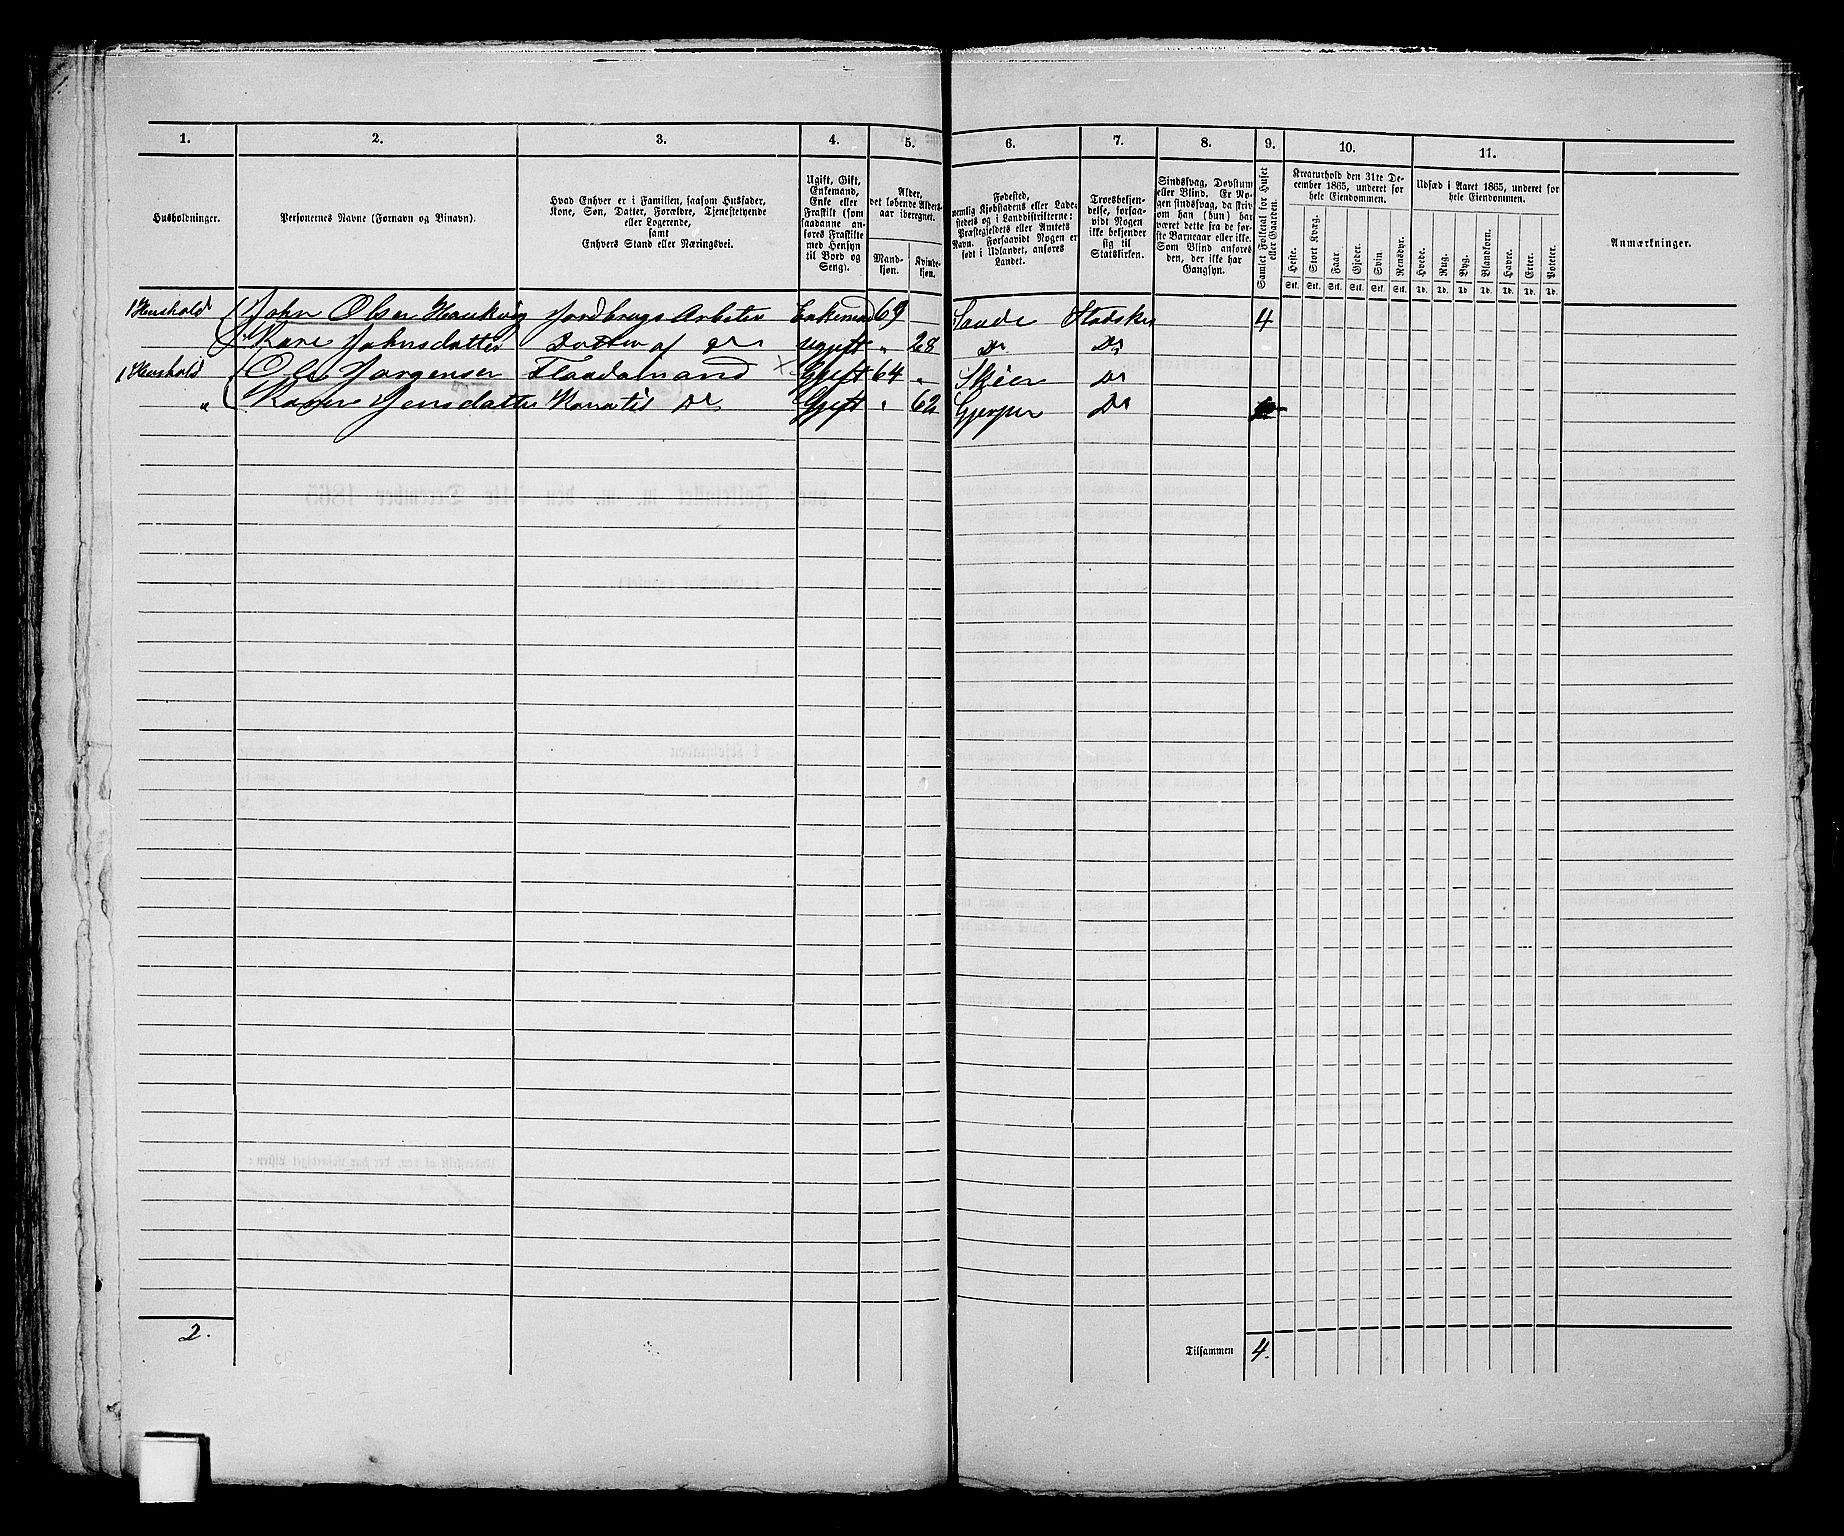 1. 2. 3. 4. 5. 6. 7. 8. 9. 10. 11.
Husholdninger.
Personernes Navne (Fornavn og Binavn).
Hvad Enhver er i Familien, saasom Husfader,
Kone, Søn, Datter, Forældre, Tjenestetyende
eller Logerende,
samt
Enhvers Stand eller Næringsvei.
Ugift, Gift,
Enkemand,
Enke eller
Fraskilt (som
saadanne an-
føres Fraskilte
med Hensyn
til Bord og
Seng).
Alder,
det løbende Alders-
aar iberegnet.
Mand-
kjøn.
Kvinde-
kjøn.
Fødested,
nemlig Kjøbstadens eller Lade-
stedets og i Landdistrikterne:
Præstegjeldets eller Amtets
Navn. Forsaavidt Nogen er
født i Udlandet, anføres
Landet.
Troesbekjen-
delse, forsaa-
vidt Nogen
ikke bekjender
sig til
Statskirken.
Sindssvag, Døvstum
eller Blind. Er No-
gen sindssvag, da skriv
om han (hun) har
været dette fra de før-
ste Barneaar eller ikke.
Som Blind anføres
den, der ikke har
Gangsyn.
Samlet Folketal for Huset
eller Gaarden.
Kreaturhold den 31te De-
cember 1865, underet for
hele Eiendommen.
Heste. Stort Kvæg. Faar. Gjeder. Svin Rensdyr.
Stk. Stk. Stk. Stk. Stk. Stk.
Udsæd i Aaret 1865, underet for
hele Eiendommen.
Hvede. Rug. Byg. Blandkorn. Havre. Erter. Poteter.
Td. Td. Td Td. Td. Td. Td.
Anmærkninger.
1 Hushold John Olsen Haukvig Jordbrugs Arbeider Enkemand 69 Sande Statskir 4
Kare Johnsdatter Datter af do ugift " 28 Do Do
1 Hushold Ole Jørgensen Flaadamand X Gjift 64 " Skien Do
" Karen Jensdatter Kone til Do Gjift " 62 Gjerpen Do
2.
Tilsammen 4.